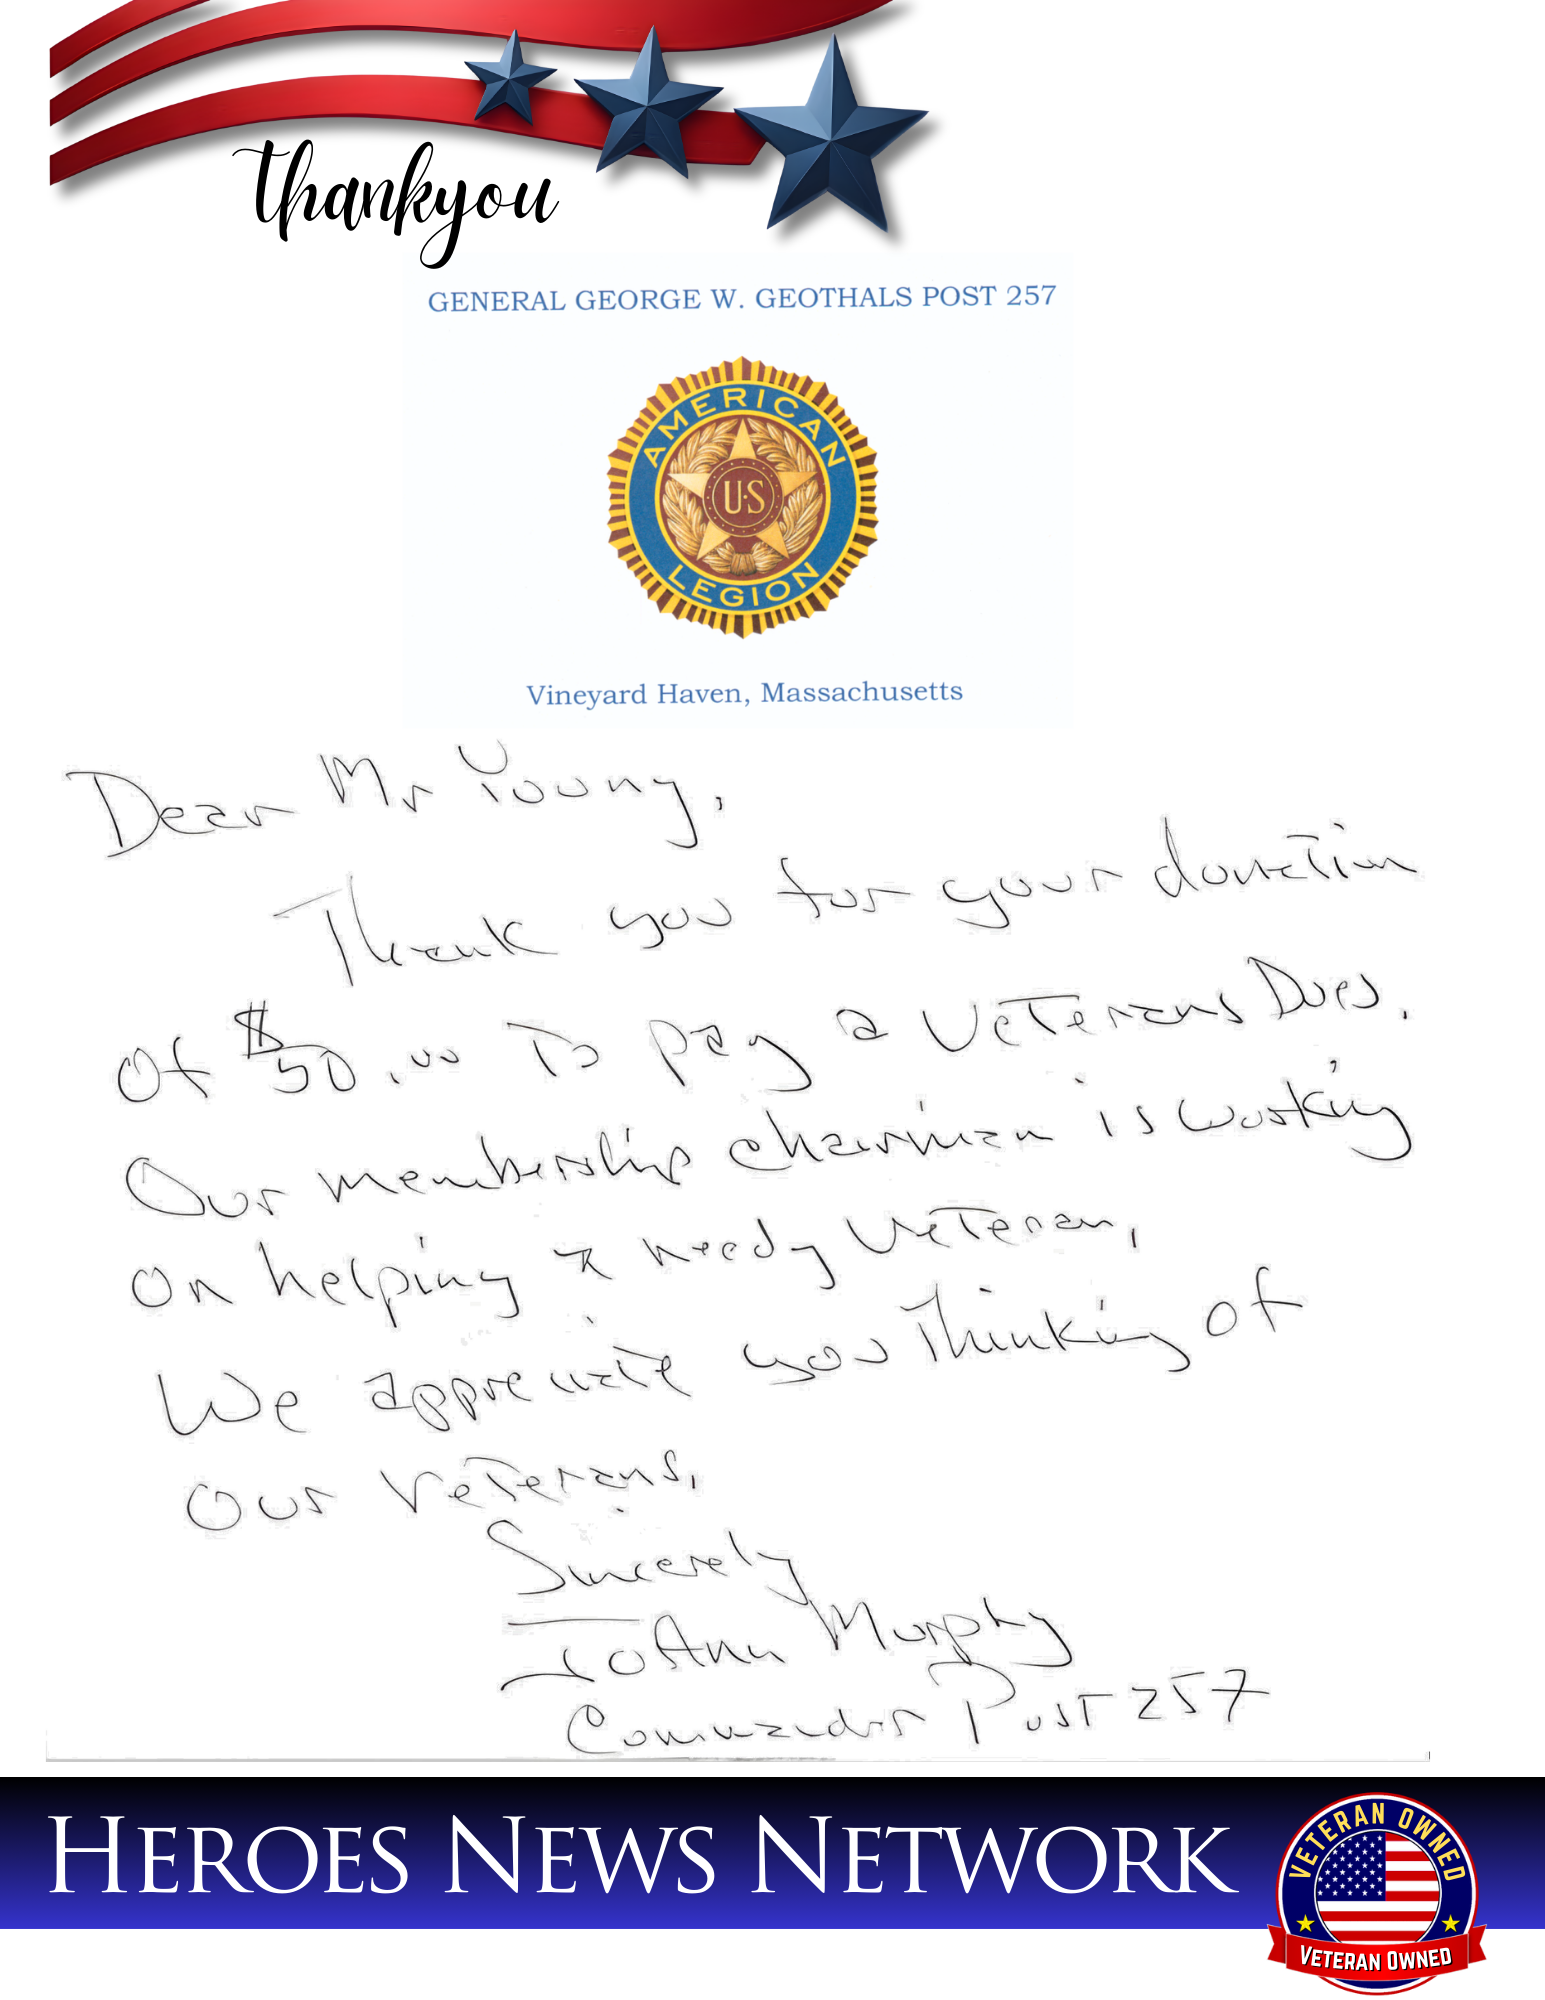 thankyou
GENERAL GEORGE W. GEOTHALS POST 257
AMERICAN
U·S
LEGION
Vineyard Haven, Massachusetts
Dear Mr Young,
Thank you for your donation
Of $50.00 To pay a Veterans Dues.
Our membership chairman is working
On helping a needy Veteran,
We appreciate you Thinking of
Our Veterans.
Sincerely
JoAnn Murphy
Commander Post 257
HEROES NEWS NETWORK
VETERAN OWNED
VETERAN OWNED